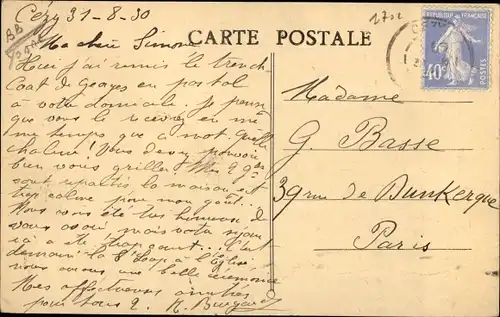 Cézy 31-8-30
Ma chère Simone
CARTE POSTALE
2702
RÉPUBLIQUE FRANÇAISE
40c
POSTES
Hier j'ai remis le trench-
Coat de Georges en postal
à votre domicile. Je pense
que vous le recevrez en mê
me temps que ce mot. Quelle
chaleur ! Vous devez pouvoir
bien vous griller. Mes 2 gds
sont repartis, la maison est
trop calme pour mon goût.
Nous avons été très heureux de
vous avoir mais votre séjour
ici a été trop court. C'est
demain à l'Église
nous aurons une belle cérémonie
Mes affectueuses amitiés
pour tous 2.
Madame
G. Basse
39 rue de Dunkerque
Paris